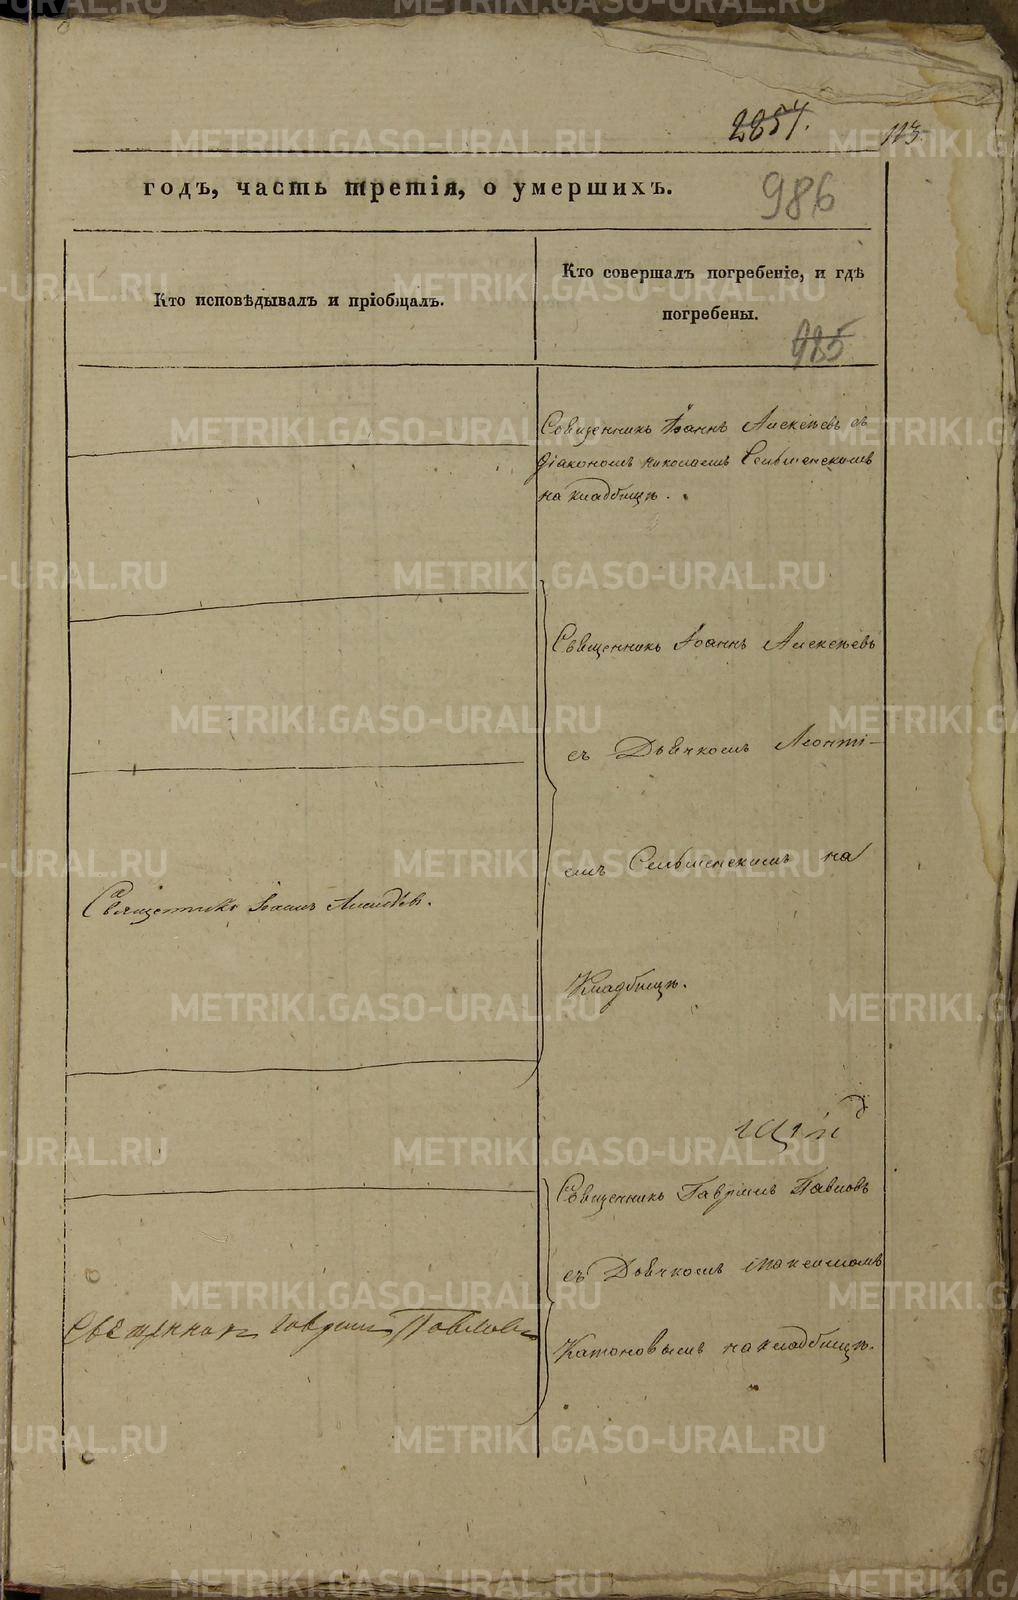 2857.
113.
годъ, часть третія, о умершихъ.
986
Кто исповѣдывалъ и пріобщалъ.
Кто совершалъ погребеніе, и гдѣ
погребены.
985
Священникъ Іоаннъ Алексѣевъ съ
діакономъ Николаемъ
на кладбищѣ.
Священникъ Іоаннъ Алексѣевъ
съ Дьячкомъ Леонті-
емъ на
Кладбищѣ.
Священникъ Іоаннъ
Священникъ Гавриилъ Павловъ
съ Дьячкомъ Максимомъ
Катоновымъ на кладбищѣ.
Священникъ Гавриилъ Павловъ
METRIKI.GASO-URAL.RU